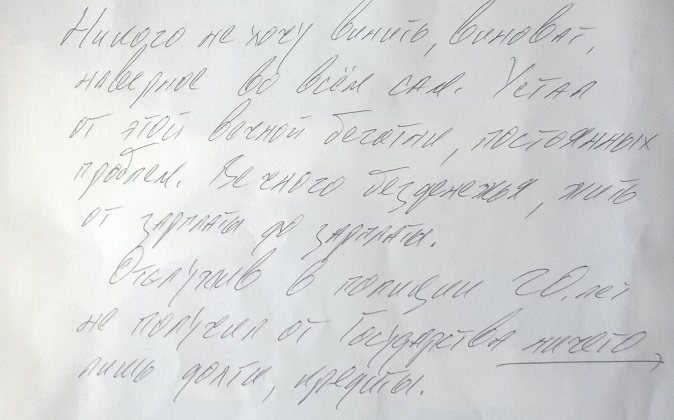 Никого не хочу винить, виноват,
наверное во всём сам. Устал
от этой вечной беготни, постоянных
проблем. Вечного безденежья, жить
от зарплаты до зарплаты.
Отслужив в полиции 20 лет
не получил от Государства ничего,
лишь долги, кредиты.